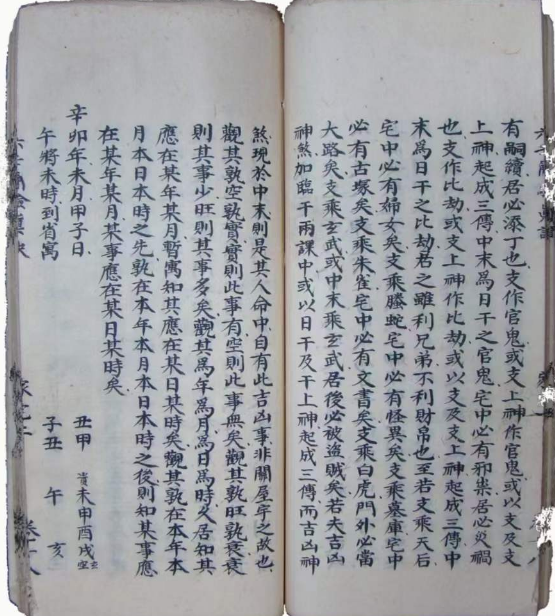 有嗣續居必添丁也支作官鬼或支上神作官鬼或以支及支
上神起成三傳中末為日干之官鬼宅中必有邪祟居必災禍
也支作比劫或支上神作比劫或以支及支上神起成三傳中
末為日干之比劫君之雖利兄弟不利財帛也至若支乘天后
宅中必有婦女矣支乘騰蛇宅中必有怪異矣支乘墓庫宅中
必有古塚矣支乘朱雀宅中必有文書矣支乘白虎門外必當
大路矣支乘玄武或中末乘玄武居後必被盜賊矣若夫吉凶
神煞加臨干兩課中或以日干及干上神起成三傳而吉凶神
煞現於中末則是其人命中自有此吉凶事非關屋宇之故也
觀其孰空孰實實則此事有空則此事無矣觀其孰旺孰衰衰
則其事少旺則其事多矣觀其為年為月為日為時久居知其
應在某年某月暫寓知其應在某日某時矣觀其孰在本年本
月本日本時之先孰在本年本月本日本時之後則知某事應
在某年某月某事應在某日某時矣
辛卯年未月甲子日 丑甲 貴未申酉戌
午將未時到省寓 子丑 午 亥